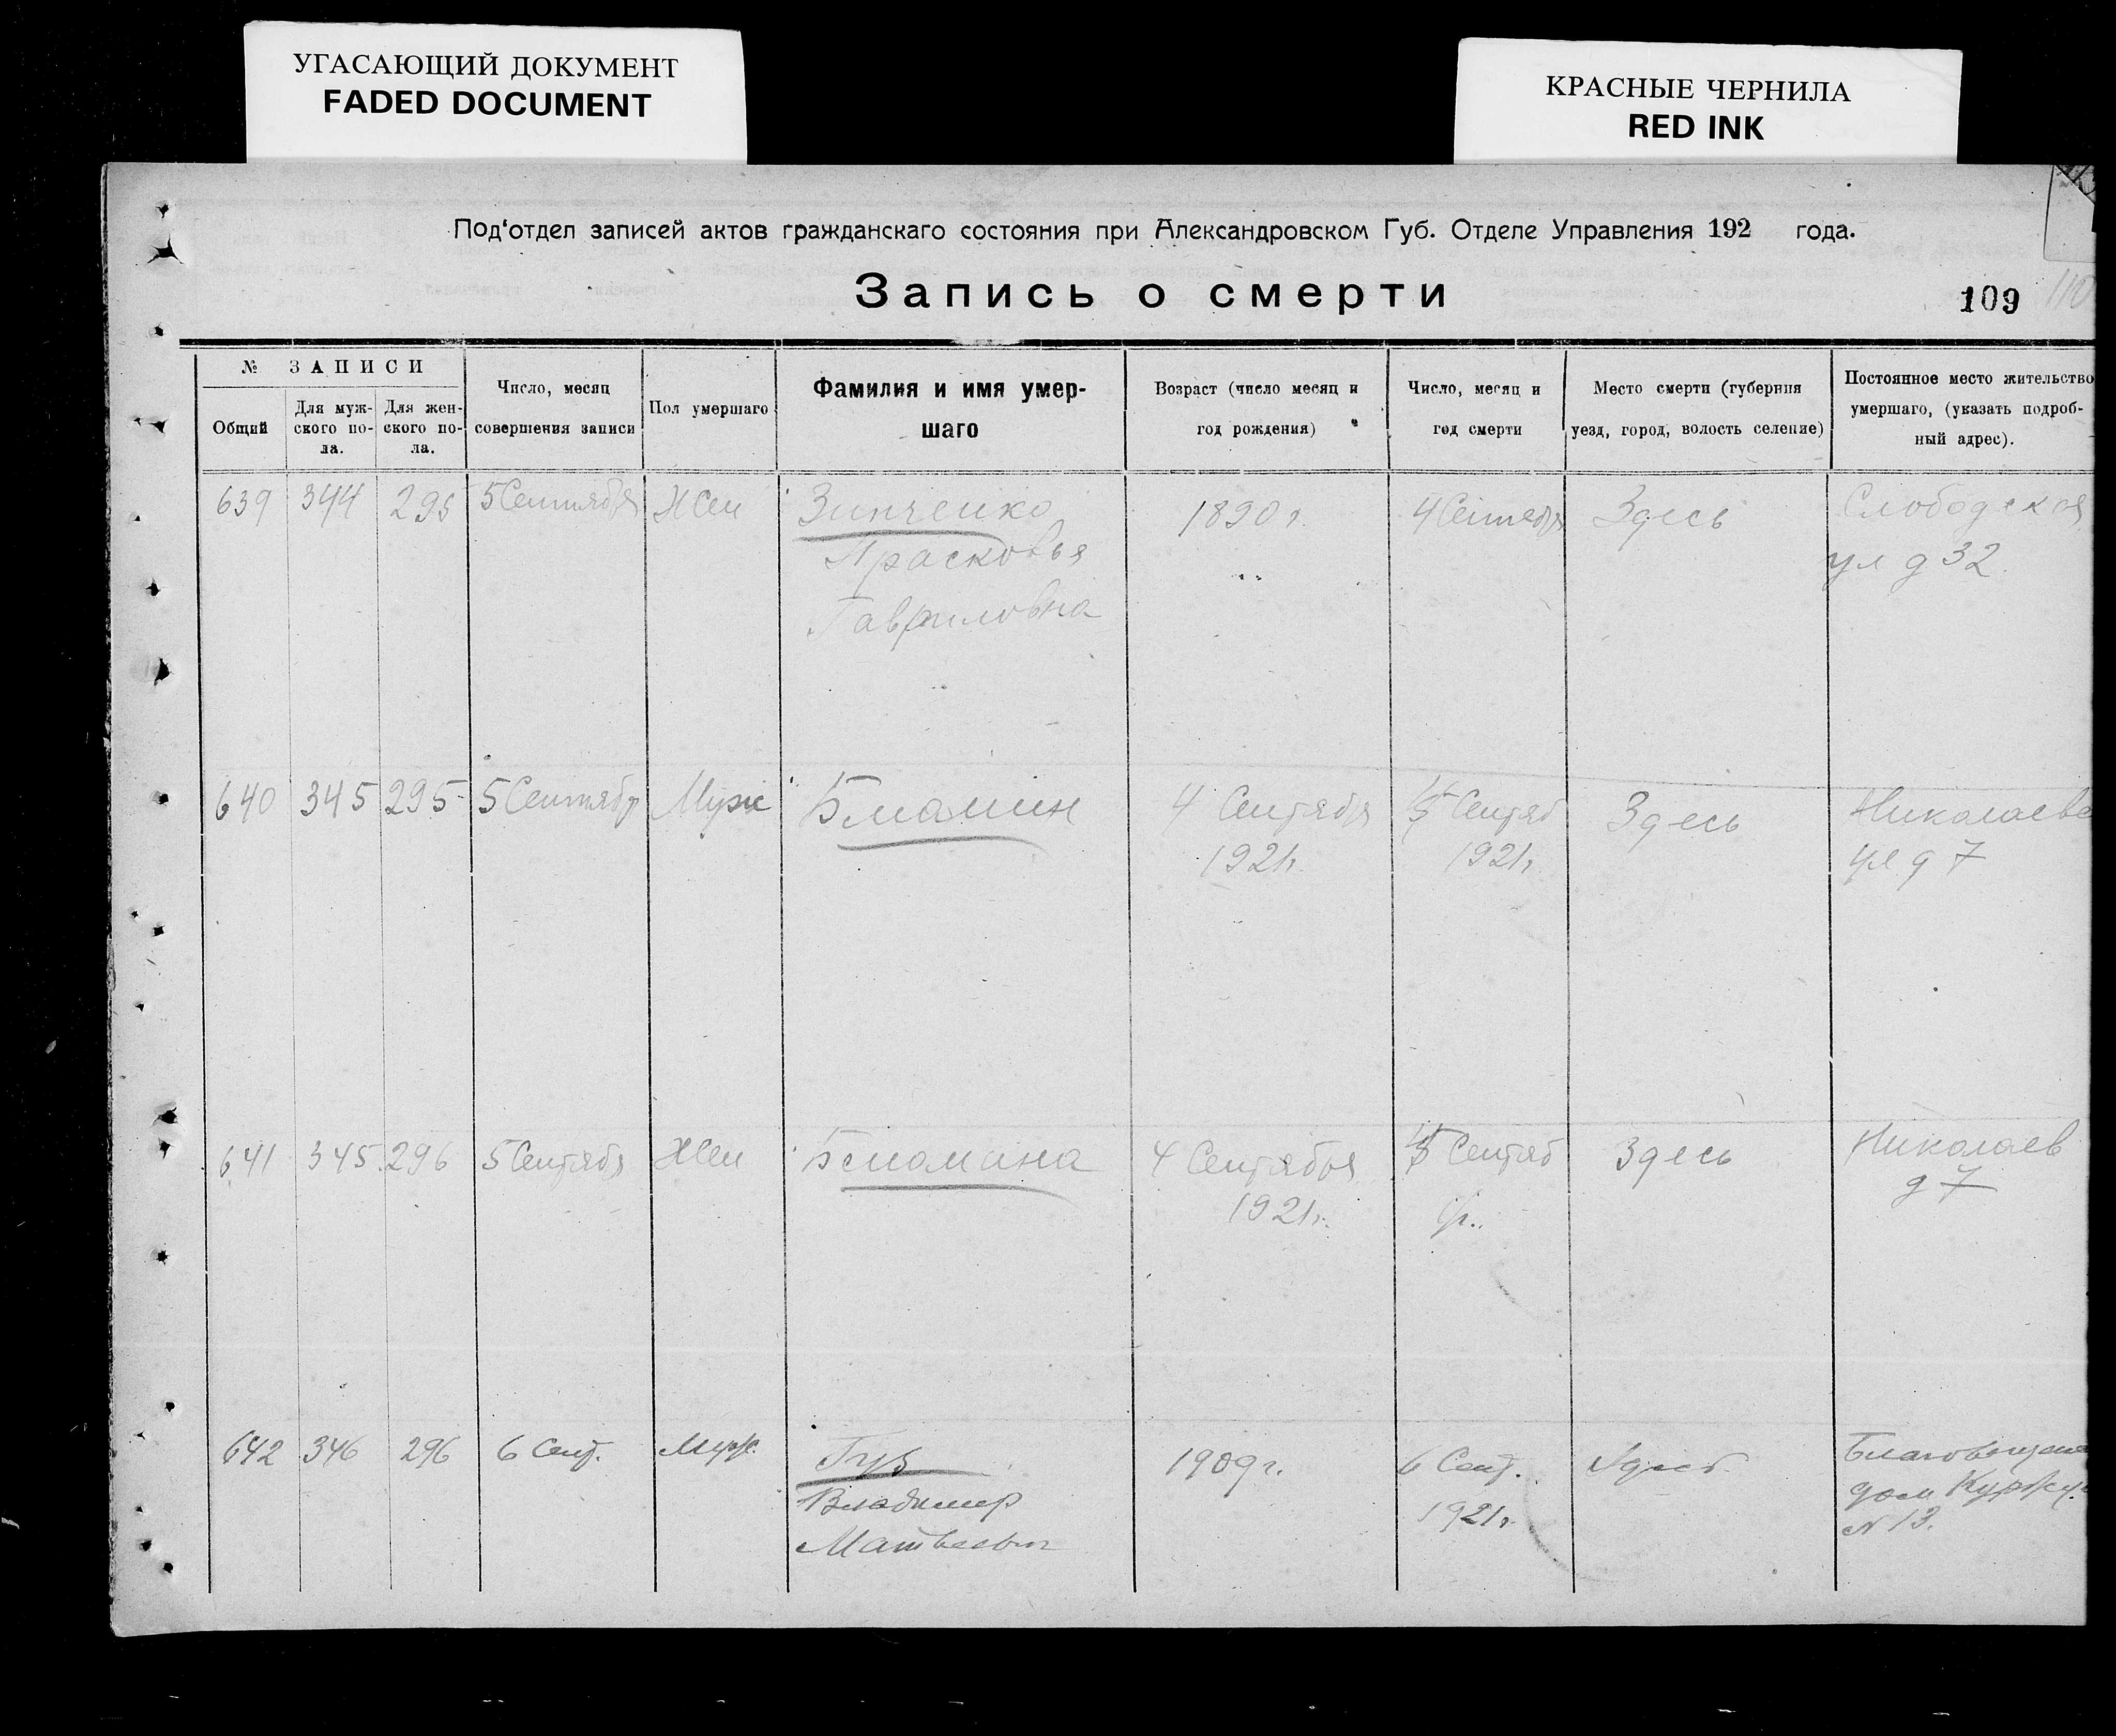 УГАСАЮЩИЙ ДОКУМЕНТ
FADED DOCUMENT
КРАСНЫЕ ЧЕРНИЛА
RED INK
Под'отдел записей актов гражданскаго состояния при Александровском Губ. Отделе Управления 192 года.
Запись о смерти
109 110
№ ЗАПИСИ
Общий
Для муж-
ского по-
ла.
Для жен-
ского по-
ла.
Число, месяц
совершения записи
Пол умершаго
Фамилия и имя умер-
шаго
Возраст (число месяц и
год рождения)
Число, месяц и
год смерти
Место смерти (губерния
уезд, город, волость селение)
Постоянное место жительство
умершаго, (указать подроб-
ный адрес).
639 344 295 5 Сентября Жен Зинченко 1890 г. 4 Сентября Здесь Слободская
Прасковья ул д 32
Гавриловна
640 345 295 5 Сентябр Муж 4 Сентября 5 Сентяб Здесь Николаевс
1921г. 1921г. ул д 7
641 345 296 5 Сентябр Жен 4 Сентября 5 Сентяб Здесь Николаев
1921г. д 7
642 346 296 6 Сент. Муж. Гуз 1909г. 6 Сент. Здесь
Владимир 1921г. дом
Матвеевич № 13.